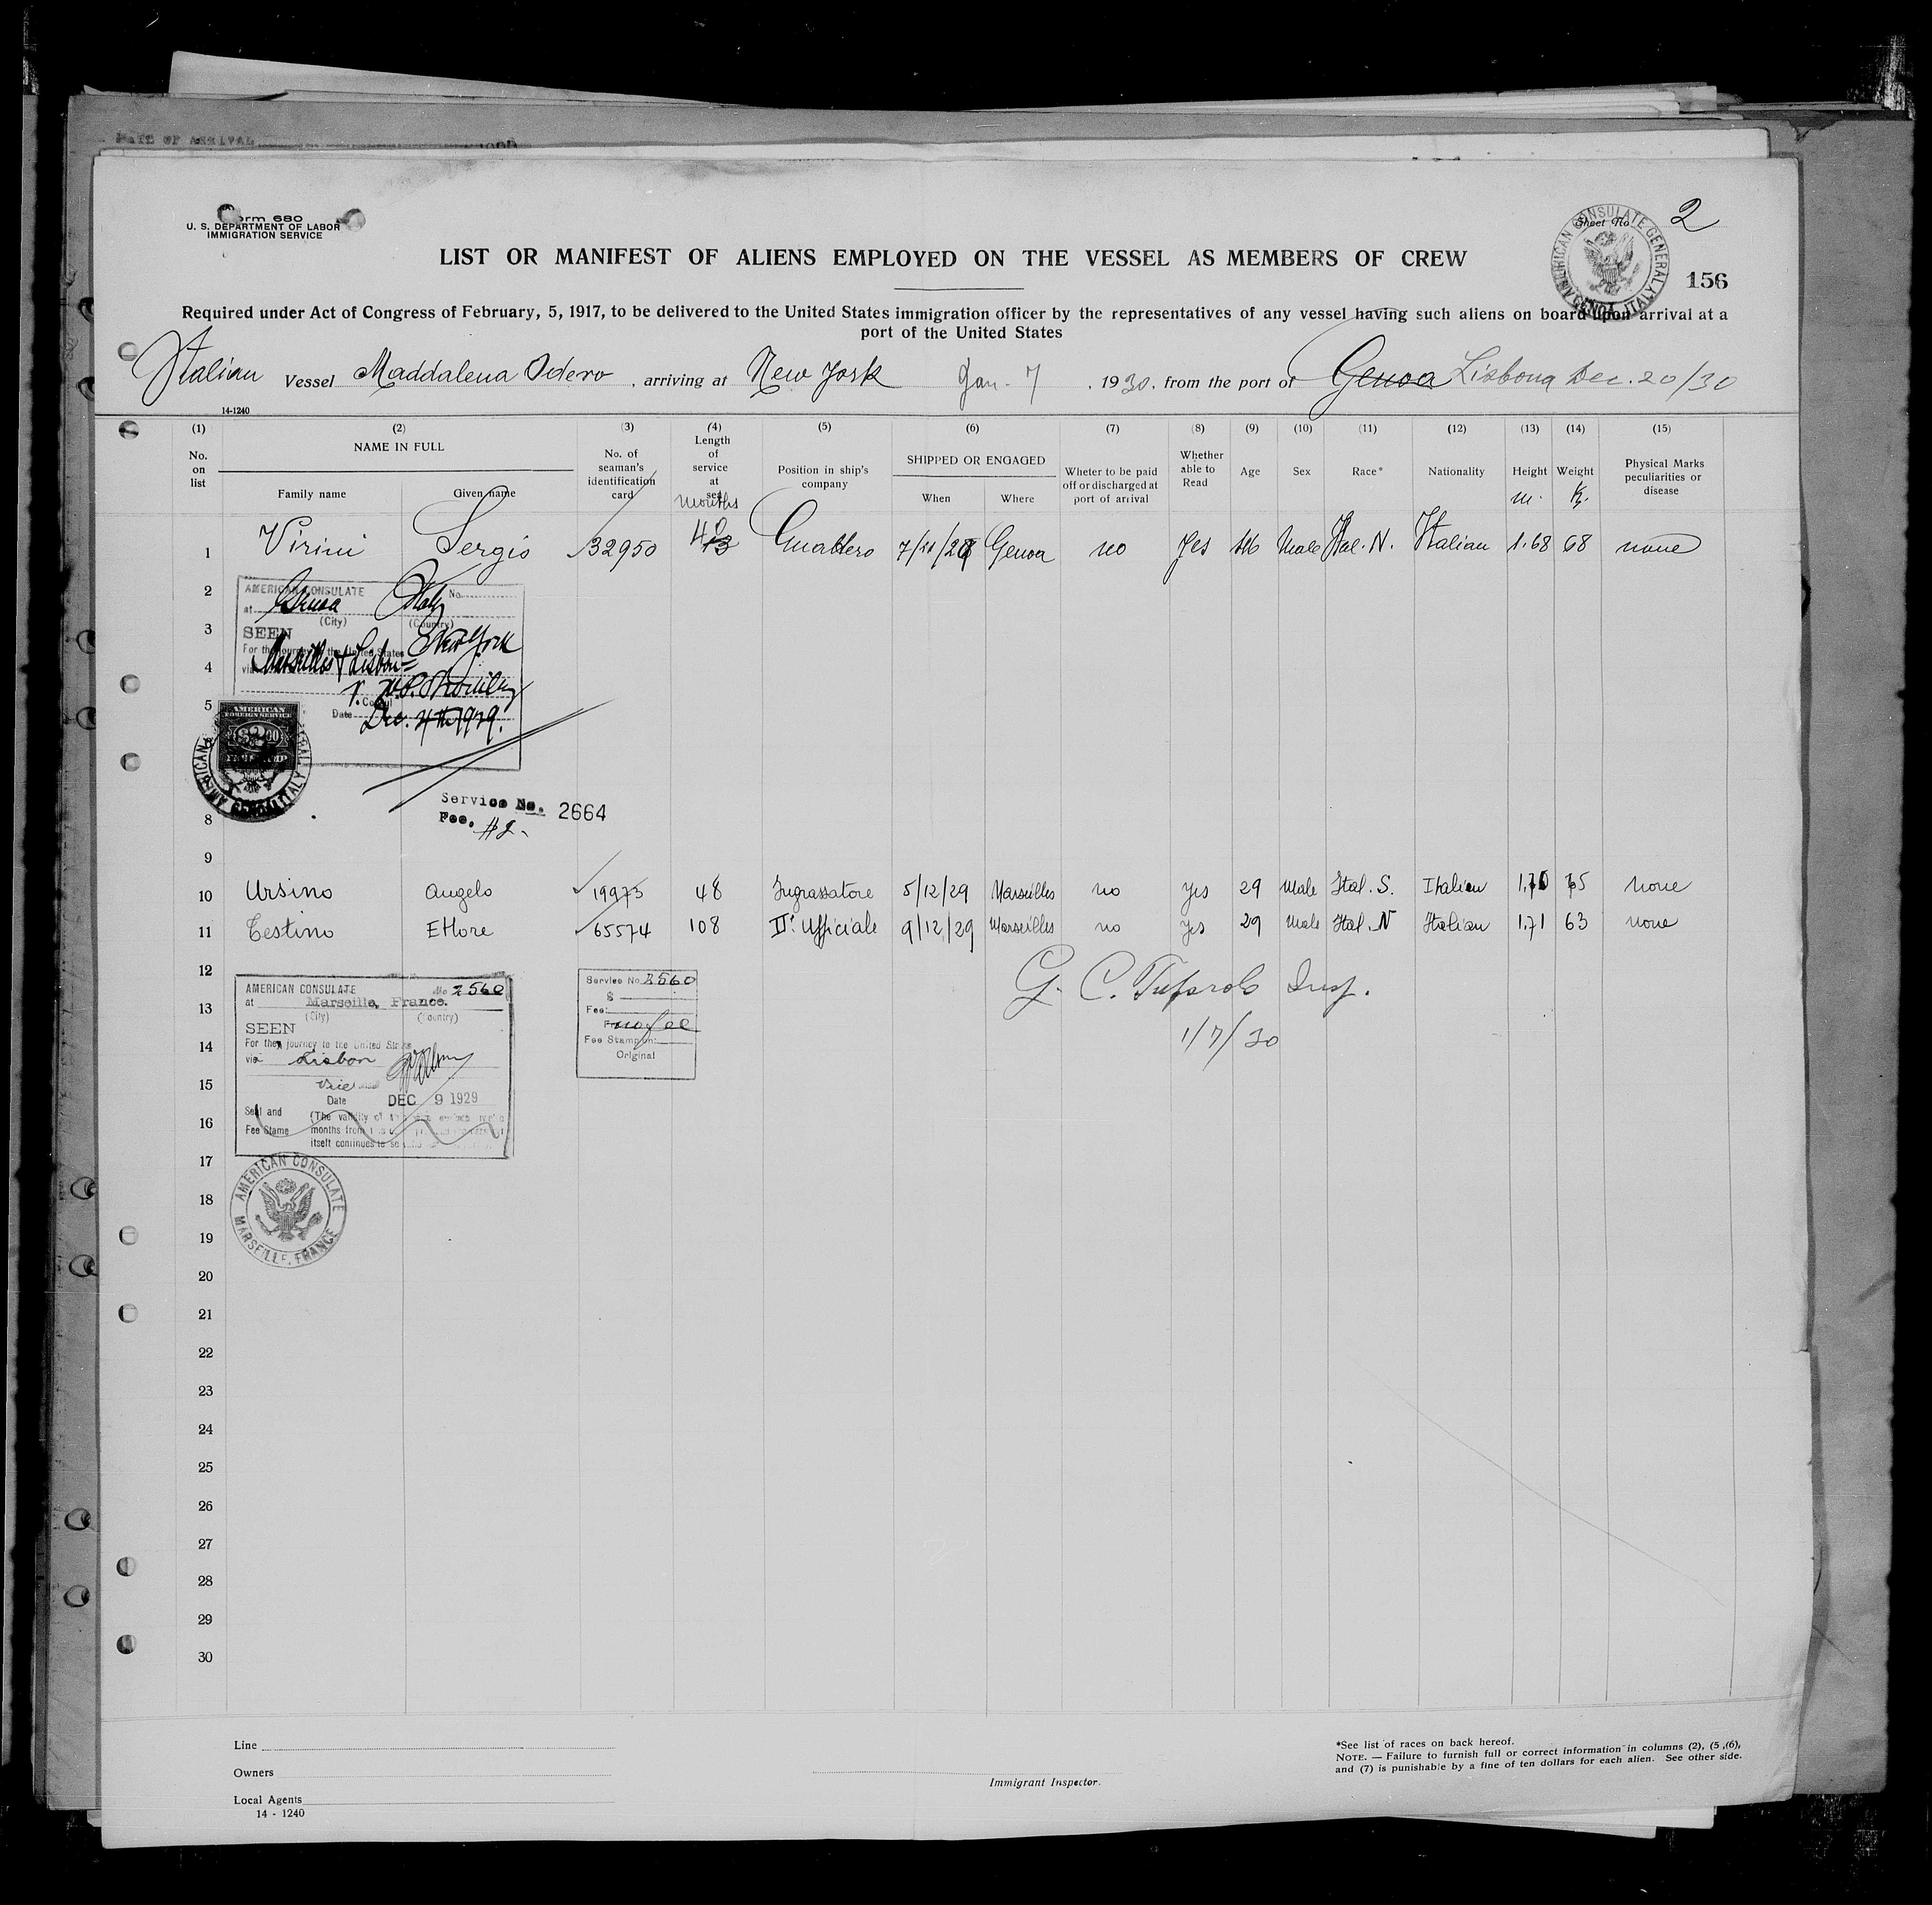 DATE OF ARRIVAL
Form 680
U. S. DEPARTMENT OF LABOR
IMMIGRATION SERVICE
Sheet No. 2
AMERICAN CONSULATE GENERAL GENOA ITALY
LIST OR MANIFEST OF ALIENS EMPLOYED ON THE VESSEL AS MEMBERS OF CREW
156
Required under Act of Congress of February, 5, 1917, to be delivered to the United States immigration officer by the representatives of any vessel having such aliens on board upon arrival at a
port of the United States
Italian Vessel Maddalena Odero, arriving at New York Jan. 7, 1930, from the port of Genoa Lisbona Dec. 20/30
14-1240
(1) (2) (3) (4) (5) (6) (7) (8) (9) (10) (11) (12) (13) (14) (15)
No. on list
NAME IN FULL
Family name Given name
No. of seaman's identification card
Length of service at sea months
Position in ship's company
SHIPPED OR ENGAGED
When Where
Wheter to be paid off or discharged at port of arrival
Whether able to Read
Age Sex Race* Nationality Height m. Weight K.
Physical Marks peculiarities or disease
1 Virini Sergio 32950 Genoa no yes Male Ital. N. Italian 1.68 68 none
2
AMERICAN CONSULATE No.
at Genoa Italy
(City) (Country)
3
SEEN
For the journey to the United States
4
via Marseilles + Lisbon = New York
5
V. Consul
Date Dec. 4th 1929.
AMERICAN FOREIGN SERVICE
$2.00
FEE STAMP
8
Service No. 2664
Fee. #2-
9
10 Ursino Angelo 19973 48 Ingrassatore 5/12/29 Marseilles no yes 29 Male Ital. S. Italian 1.70 75 none
11 Testino Ettore 65574 108 II° Ufficiale 9/12/29 Marseilles no yes 29 Male Ital. N Italian 1.71 63 none
12
AMERICAN CONSULATE No 2560
at Marseille, France.
(City) (Country)
Service No. 2560
$
Fee:
no fee
Fee Stamp on:
Original
G. C. Insp.
1/7/30
13
SEEN
14
For the journey to the United States
via Lisbon
15
Vice
Date DEC 9 1929
Seal and
16
Fee Stame
(The validity of
months from
itself continues
17
AMERICAN CONSULATE
MARSEILLE, FRANCE
18
19
20
21
22
23
24
25
26
27
28
29
30
Line
Owners
Local Agents
14 - 1240
Immigrant Inspector.
*See list of races on back hereof.
NOTE. — Failure to furnish full or correct information in columns (2), (5 ,(6),
and (7) is punishable by a fine of ten dollars for each alien. See other side.